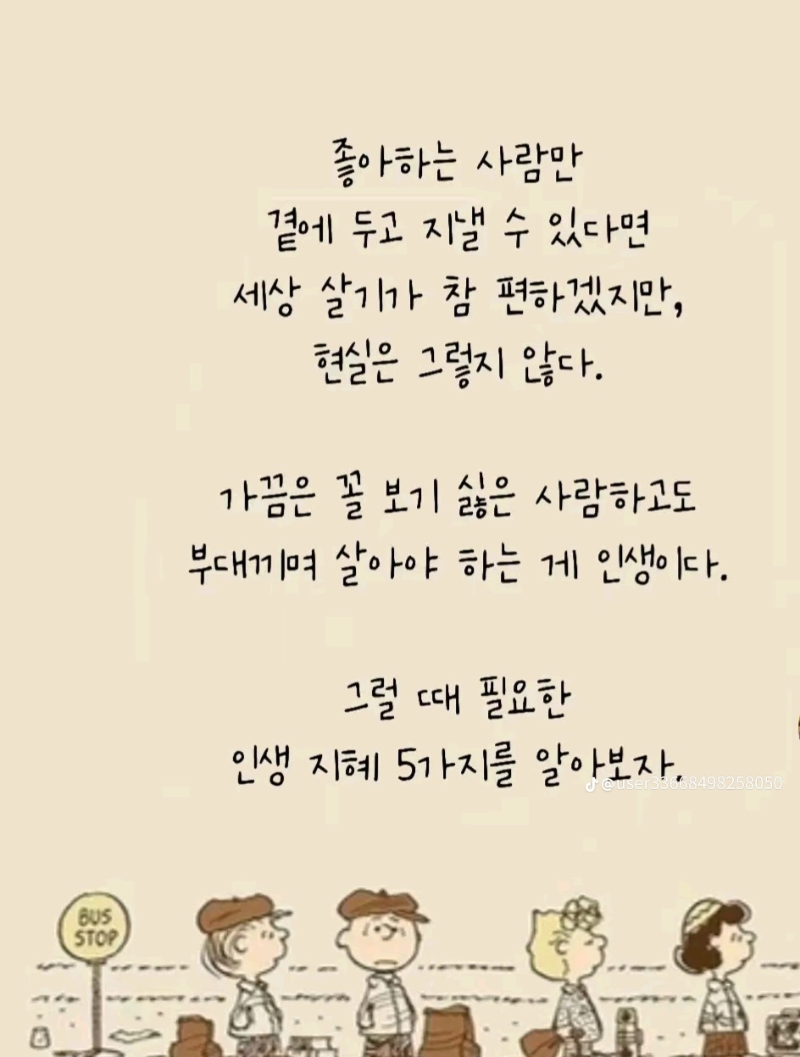 좋아하는 사람만
곁에 두고 지낼 수 있다면
세상 살기가 참 편하겠지만,
현실은 그렇지 않다.
가끔은 꼴 보기 싫은 사람하고도
부대끼며 살아야 하는 게 인생이다.
그럴 때 필요한
인생 지혜 5가지를 알아보자.
@user33668498258050
BUS
STOP